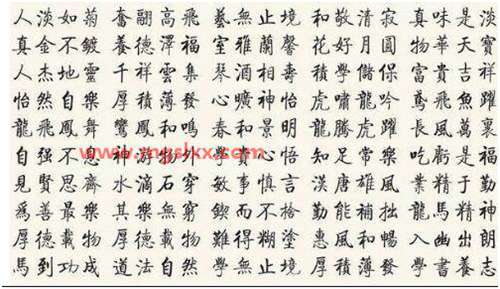 人淡如菊 奮翮高飛 藝無止境 和敬清寂 真味是淡
真金不鍍 養德澤福 室雅蘭馨 花好月圓 物華天寶
人杰地靈 千祥雲集 琴酒相壽 積學儲保 富貴吉祥
怡然自樂 厚積薄發 心曠神怡 虎嘯龍吟 鳶飛魚躍
龍飛鳳舞 鸞鳳和鳴 春和景明 龍騰虎躍 長風萬裏
自强不息 神游物外 學無心悟 知足常樂 吃虧是福
www.mgslxx.com
見賢思齊 水滴石穿 敏事慎言 漢唐雄風 業精于勤
爲善最樂 其樂無窮 鍥而不捨 勤能補拙 龍馬精神
厚德載物 厚德載物 難得糊塗 惠風和暢 入幽出朗
馬到功成 道法自然 學無止境 厚積薄發 學書養志